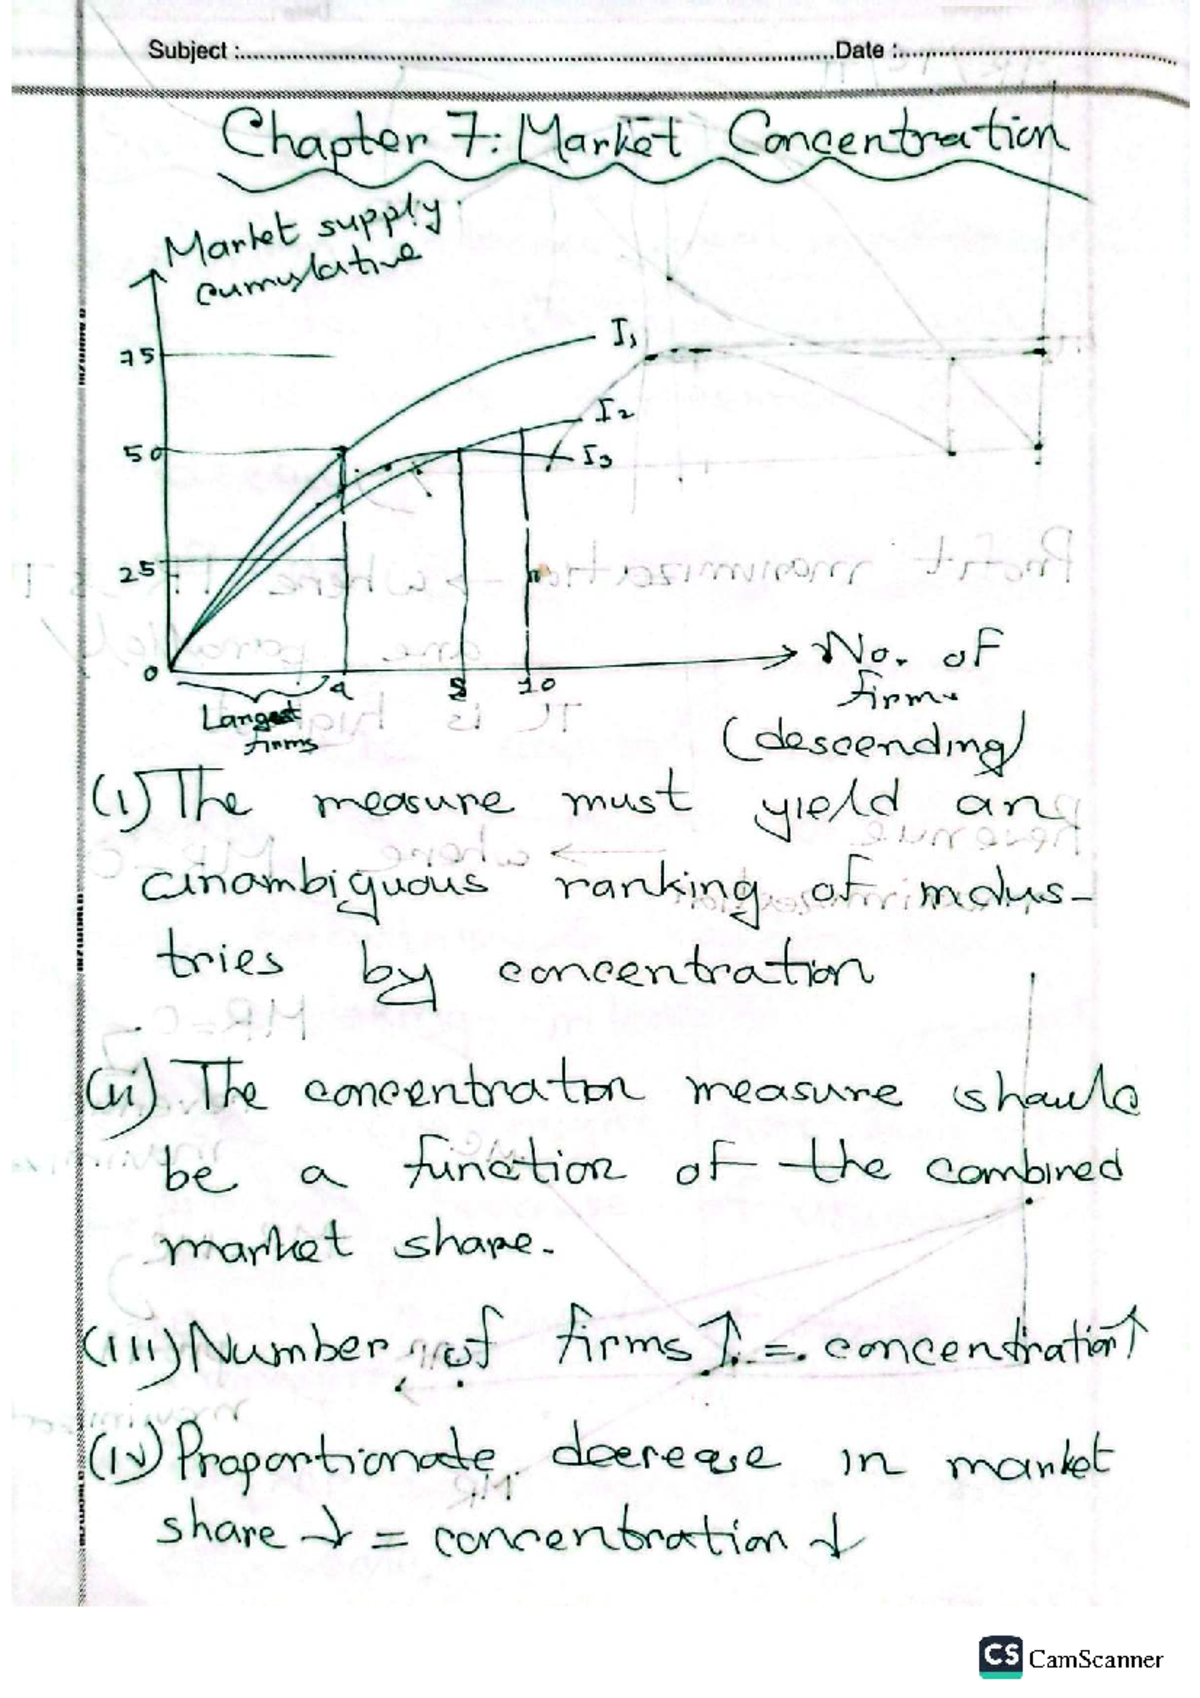 Subject :
Date :
Chapter 7: Market Concentration
Market supply
cumulative
75
50
25
0
I₁
I₂
I₃
4
8
10
Largest
firms
No. of
firms
(descending)
(i) The measure must yield an
unambiguous ranking of indus-
tries by concentration
(ii) The concentration measure should
be a function of the combined
market share.
(iii) Number of firms ↑ = concentration ↑
(iv) Proportionate decrease in market
share ↓ = concentration ↓
CS CamScanner